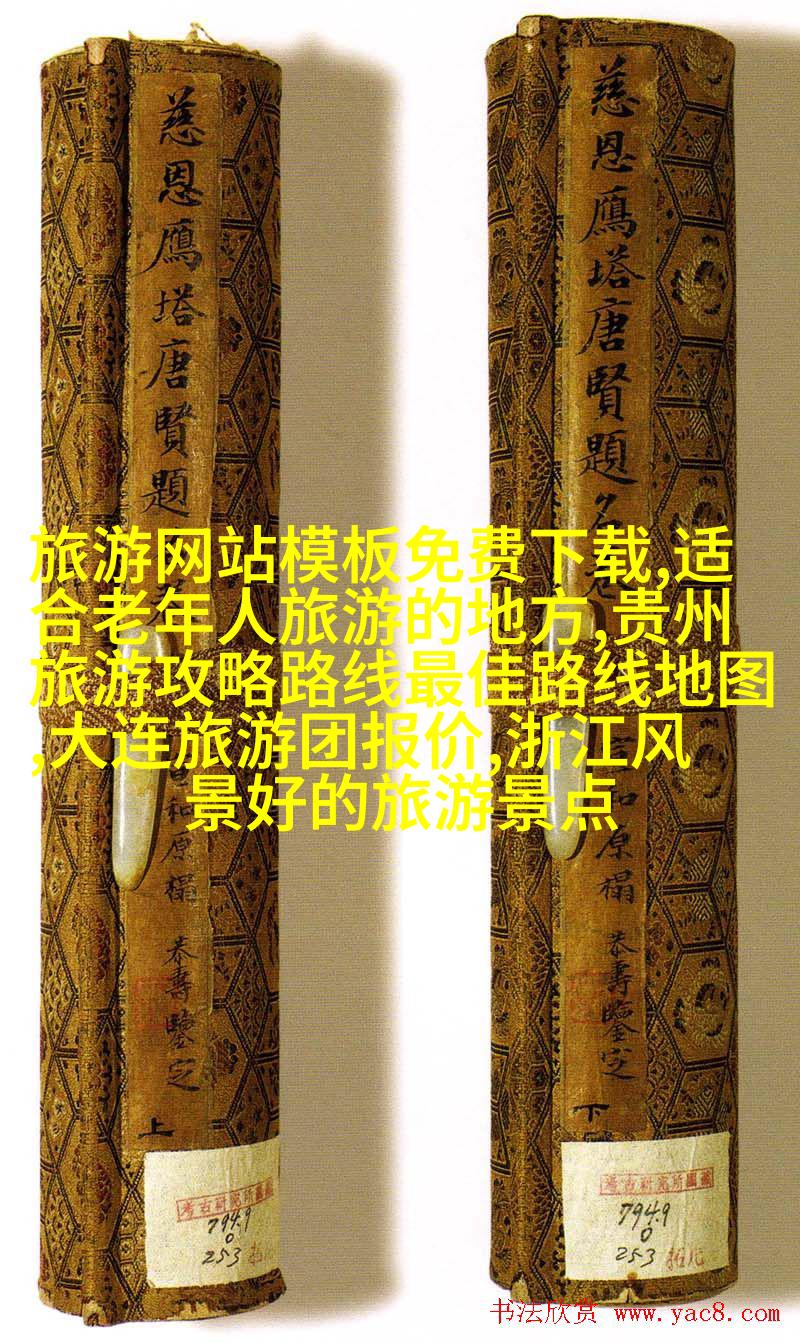 慈恩鴈塔唐賢題
慈恩鴈塔唐賢題名
旅游网站模板免费下载,适
合老年人旅游的地方,贵州
旅游攻略路线最佳路线地图
,大连旅游团报价,浙江风
景好的旅游景点
和原榻
恭壽鑒定
上
和原榻
恭壽鑒定
下
考古研究所圖藏
794.9
0
253
考古研究所圖藏
794.9
0
253
书法欣赏 www.yac8.com